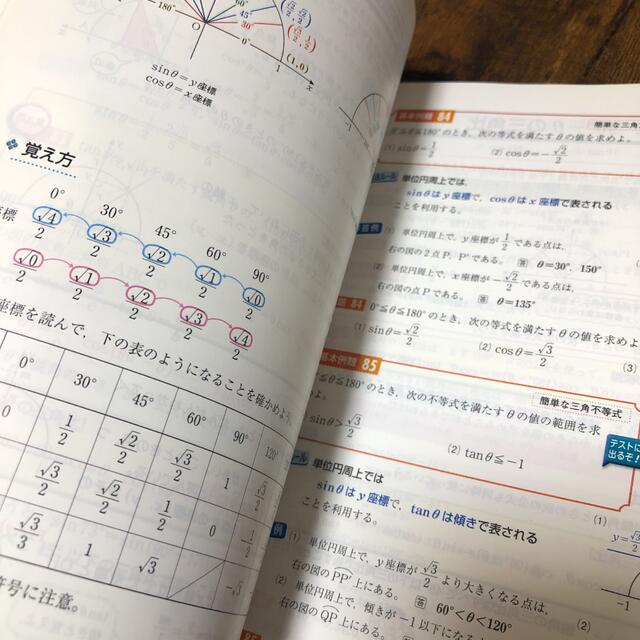 180°
60°
45°
30°
0°
(√2/2, √2/2)
(√3/2, 1/2)
O
1
(1,0)
x
sinθ=y座標
cosθ=x座標
覚え方
0° 30° 45° 60° 90°
座標
√4/2 √3/2 √2/2 √1/2 √0/2
√0/2 √1/2 √2/2 √3/2 √4/2
座標を読んで，下の表のようになることを確かめよう。
0° 30° 45° 60° 90° 120°
0 1/2 √2/2 √3/2 1
√3/2 √2/2 1/2 0
√3/3 1 √3
符号に注意。
基本例題 84
簡単な三角
0°≦θ≦180°のとき，次の等式を満たすθの値を求めよ。
(1) sinθ=1/2 (2) cosθ=-√2/2
ルール 単位円周上では，
sinθはy座標で，cosθはx座標で表される
ことを利用する。
(1) 単位円周上で，y座標が1/2である点は，
右の図の2点P，P′である。 答 θ=30°，150°
(2) 単位円周上で，x座標が-√2/2である点は，
右の図の点Pである。 答 θ=135°
84 0°≦θ≦180°のとき，次の等式を満たすθの値を求めよ
(1) sinθ=√2/2 (2) cosθ=√3/2 (3)
基本例題 85
簡単な三角不等式
≦θ≦180°のとき，次の不等式を満たすθの値の範囲を求
sinθ>√3/2 (2) tanθ≦-1
テストに
出るぞ！
ルール 単位円周上では
sinθはy座標で，tanθは傾きで表される
ことを利用する。
例 (1) 単位円周上で，y座標が√3/2より大きくなる点は，
右の図のPP′上にある。 答 60°<θ<120°
(2) 単位円周上で，傾きが-1以下になる
右の図のQP上にある。
(1)
y=√3/2
-1